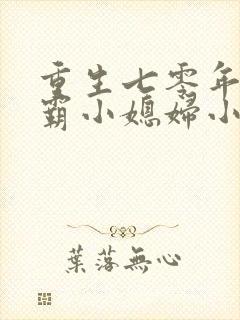 重生七零年
霸小媳婦小
葉落無心